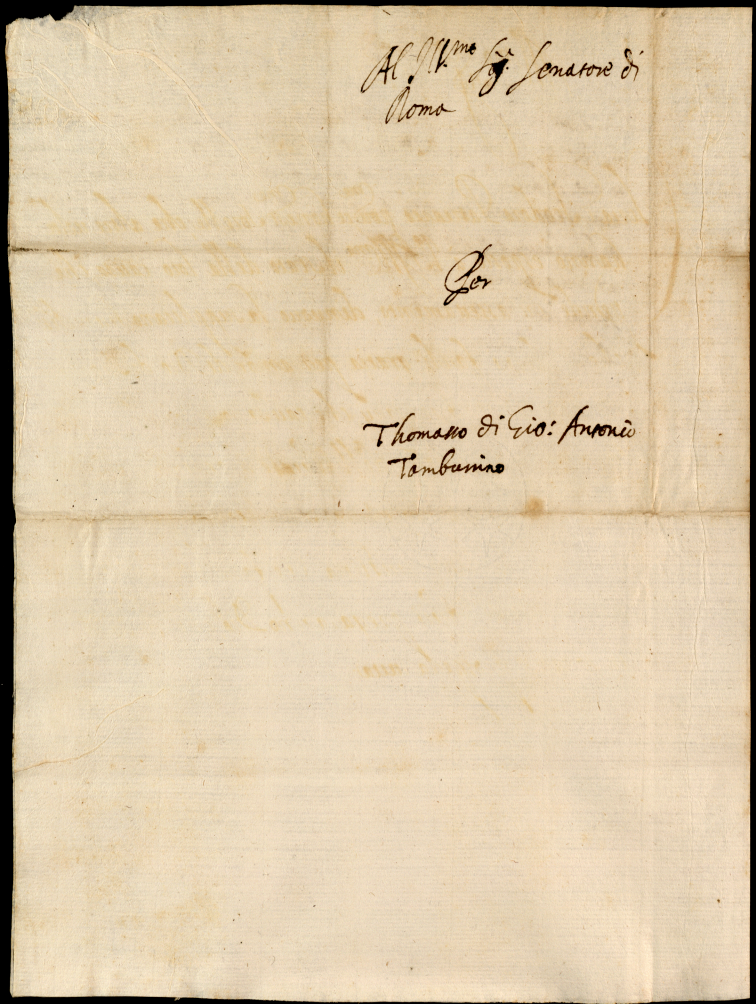 Al Ill.mo Sig.r Senatore di
Roma
Per
Thomasso di Gio: Antonio
Tamburino